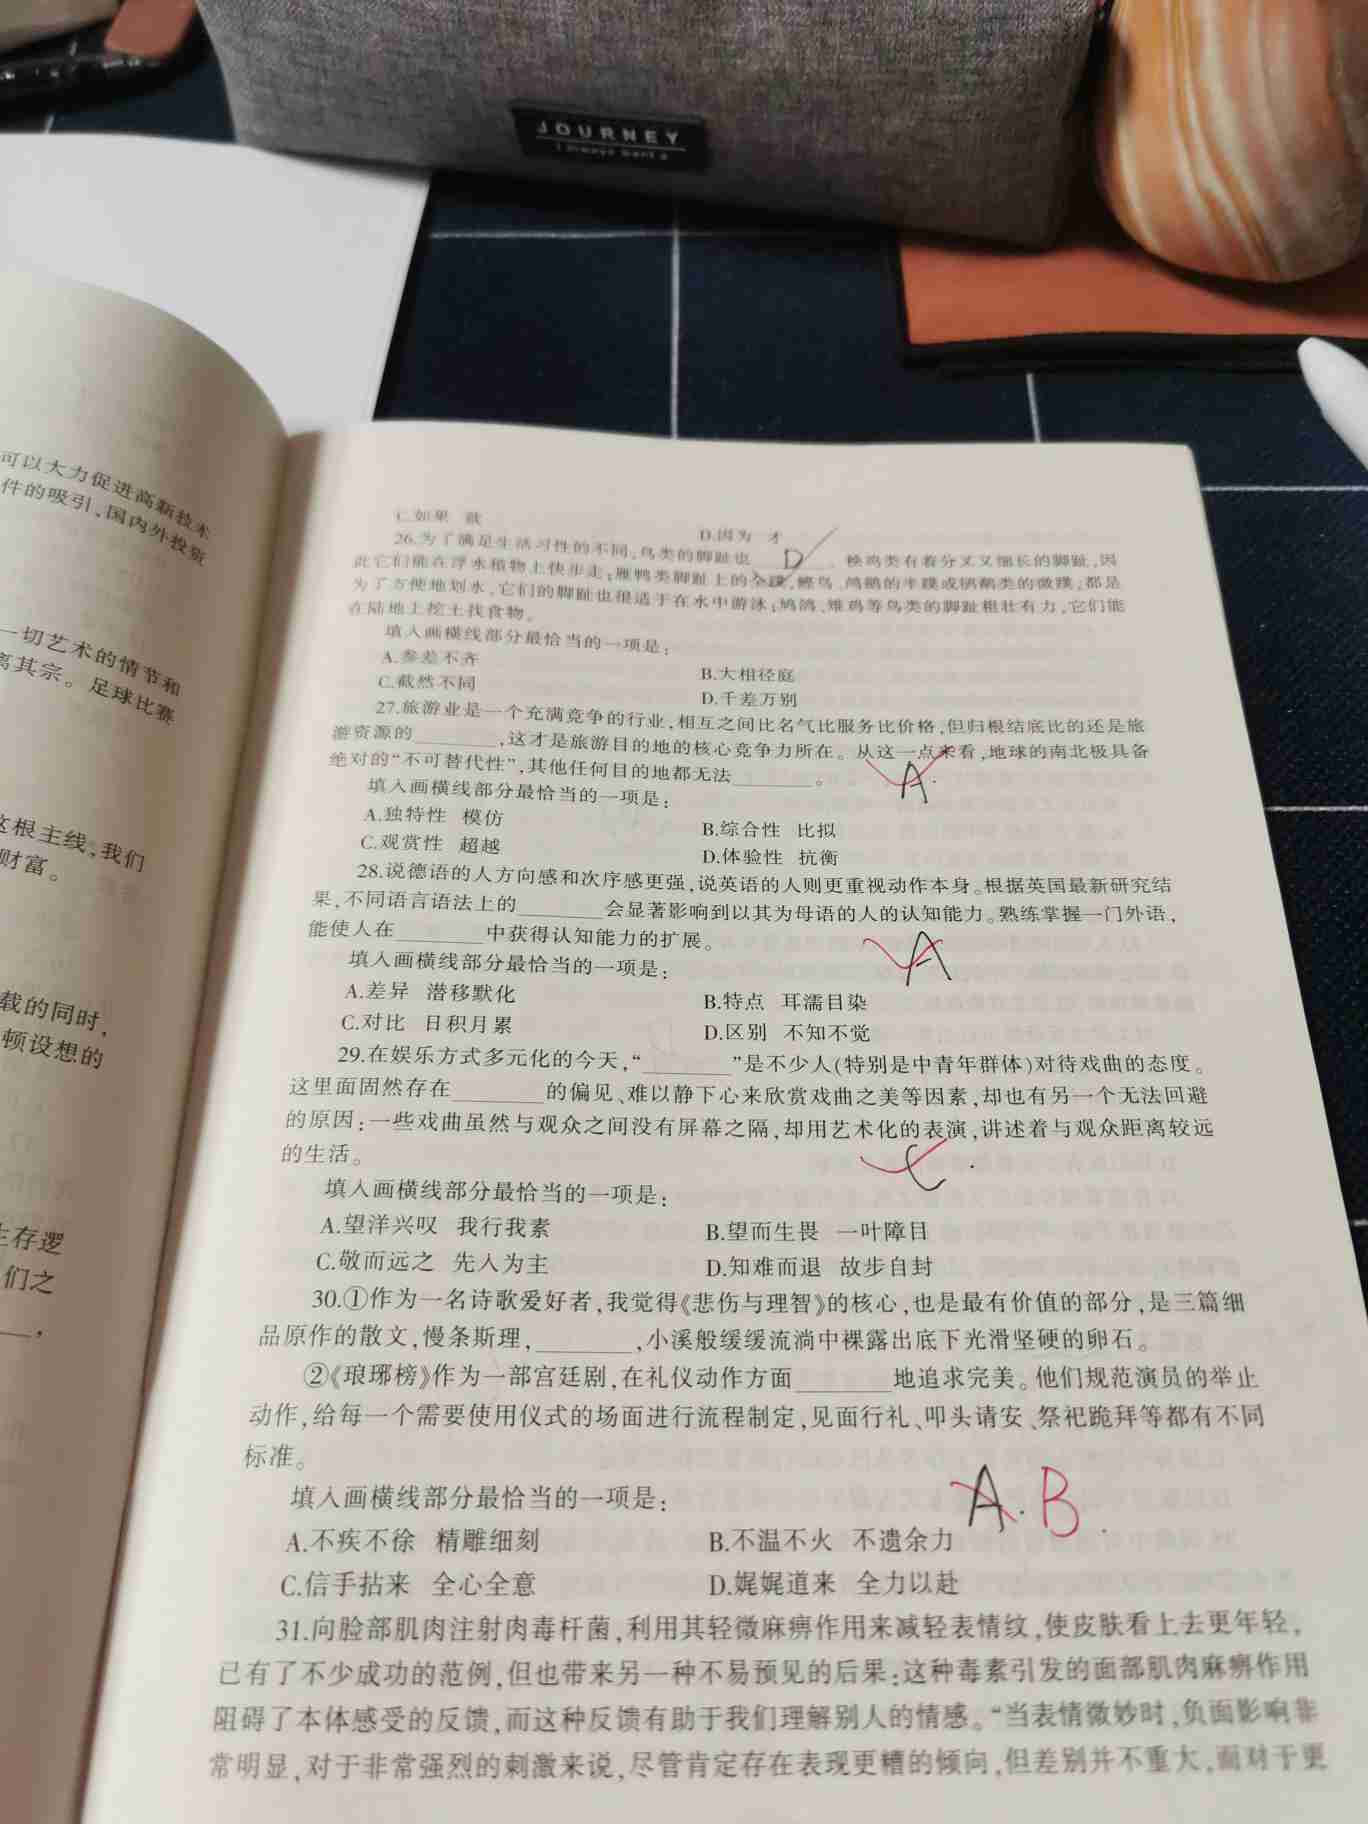 JOURNEY
可以大力促进高新技术
件的吸引,国内外投资
一切艺术的情节和
离其宗。足球比赛
这根主线,我们
财富。
载的同时,
顿设想的
生存逻
们之
C.如果 就
D.因为 才
26.为了满足生活习性的不同,鸟类的脚趾也 D 。秧鸡类有着分叉又细长的脚趾,因
此它们能在浮水植物上快步走;雁鸭类脚趾上的全蹼,鲣鸟、鸬鹚的半蹼或䴙䴘类的微蹼,都是
为了方便地划水,它们的脚趾也很适于在水中游泳;鸠鸽、雉鸡等鸟类的脚趾粗壮有力,它们能
在陆地上挖土找食物。
填入画横线部分最恰当的一项是:
A.参差不齐
B.大相径庭
C.截然不同
D.千差万别
27.旅游业是一个充满竞争的行业,相互之间比名气比服务比价格,但归根结底比的还是旅
游资源的________,这才是旅游目的地的核心竞争力所在。从这一点来看,地球的南北极具备
绝对的“不可替代性”,其他任何目的地都无法________。
A.
填入画横线部分最恰当的一项是:
A.独特性 模仿
B.综合性 比拟
C.观赏性 超越
D.体验性 抗衡
28.说德语的人方向感和次序感更强,说英语的人则更重视动作本身。根据英国最新研究结
果,不同语言语法上的________会显著影响到以其为母语的人的认知能力。熟练掌握一门外语,
能使人在________中获得认知能力的扩展。
A
填入画横线部分最恰当的一项是:
A.差异 潜移默化
B.特点 耳濡目染
C.对比 日积月累
D.区别 不知不觉
29.在娱乐方式多元化的今天,“________”是不少人(特别是中青年群体)对待戏曲的态度。
这里面固然存在________的偏见、难以静下心来欣赏戏曲之美等因素,却也有另一个无法回避
的原因:一些戏曲虽然与观众之间没有屏幕之隔,却用艺术化的表演,讲述着与观众距离较远
的生活。
C
填入画横线部分最恰当的一项是:
A.望洋兴叹 我行我素
B.望而生畏 一叶障目
C.敬而远之 先入为主
D.知难而退 故步自封
30.①作为一名诗歌爱好者,我觉得《悲伤与理智》的核心,也是最有价值的部分,是三篇细
品原作的散文,慢条斯理,________,小溪般缓缓流淌中裸露出底下光滑坚硬的卵石。
②《琅琊榜》作为一部宫廷剧,在礼仪动作方面________地追求完美。他们规范演员的举止
动作,给每一个需要使用仪式的场面进行流程制定,见面行礼、叩头请安、祭祀跪拜等都有不同
标准。
填入画横线部分最恰当的一项是:
A.B
A.不疾不徐 精雕细刻
B.不温不火 不遗余力
C.信手拈来 全心全意
D.娓娓道来 全力以赴
31.向脸部肌肉注射肉毒杆菌,利用其轻微麻痹作用来减轻表情纹,使皮肤看上去更年轻,
已有了不少成功的范例,但也带来另一种不易预见的后果:这种毒素引发的面部肌肉麻痹作用
阻碍了本体感受的反馈,而这种反馈有助于我们理解别人的情感。“当表情微妙时,负面影响非
常明显,对于非常强烈的刺激来说,尽管肯定存在表现更糟的倾向,但差别并不重大,而对于更